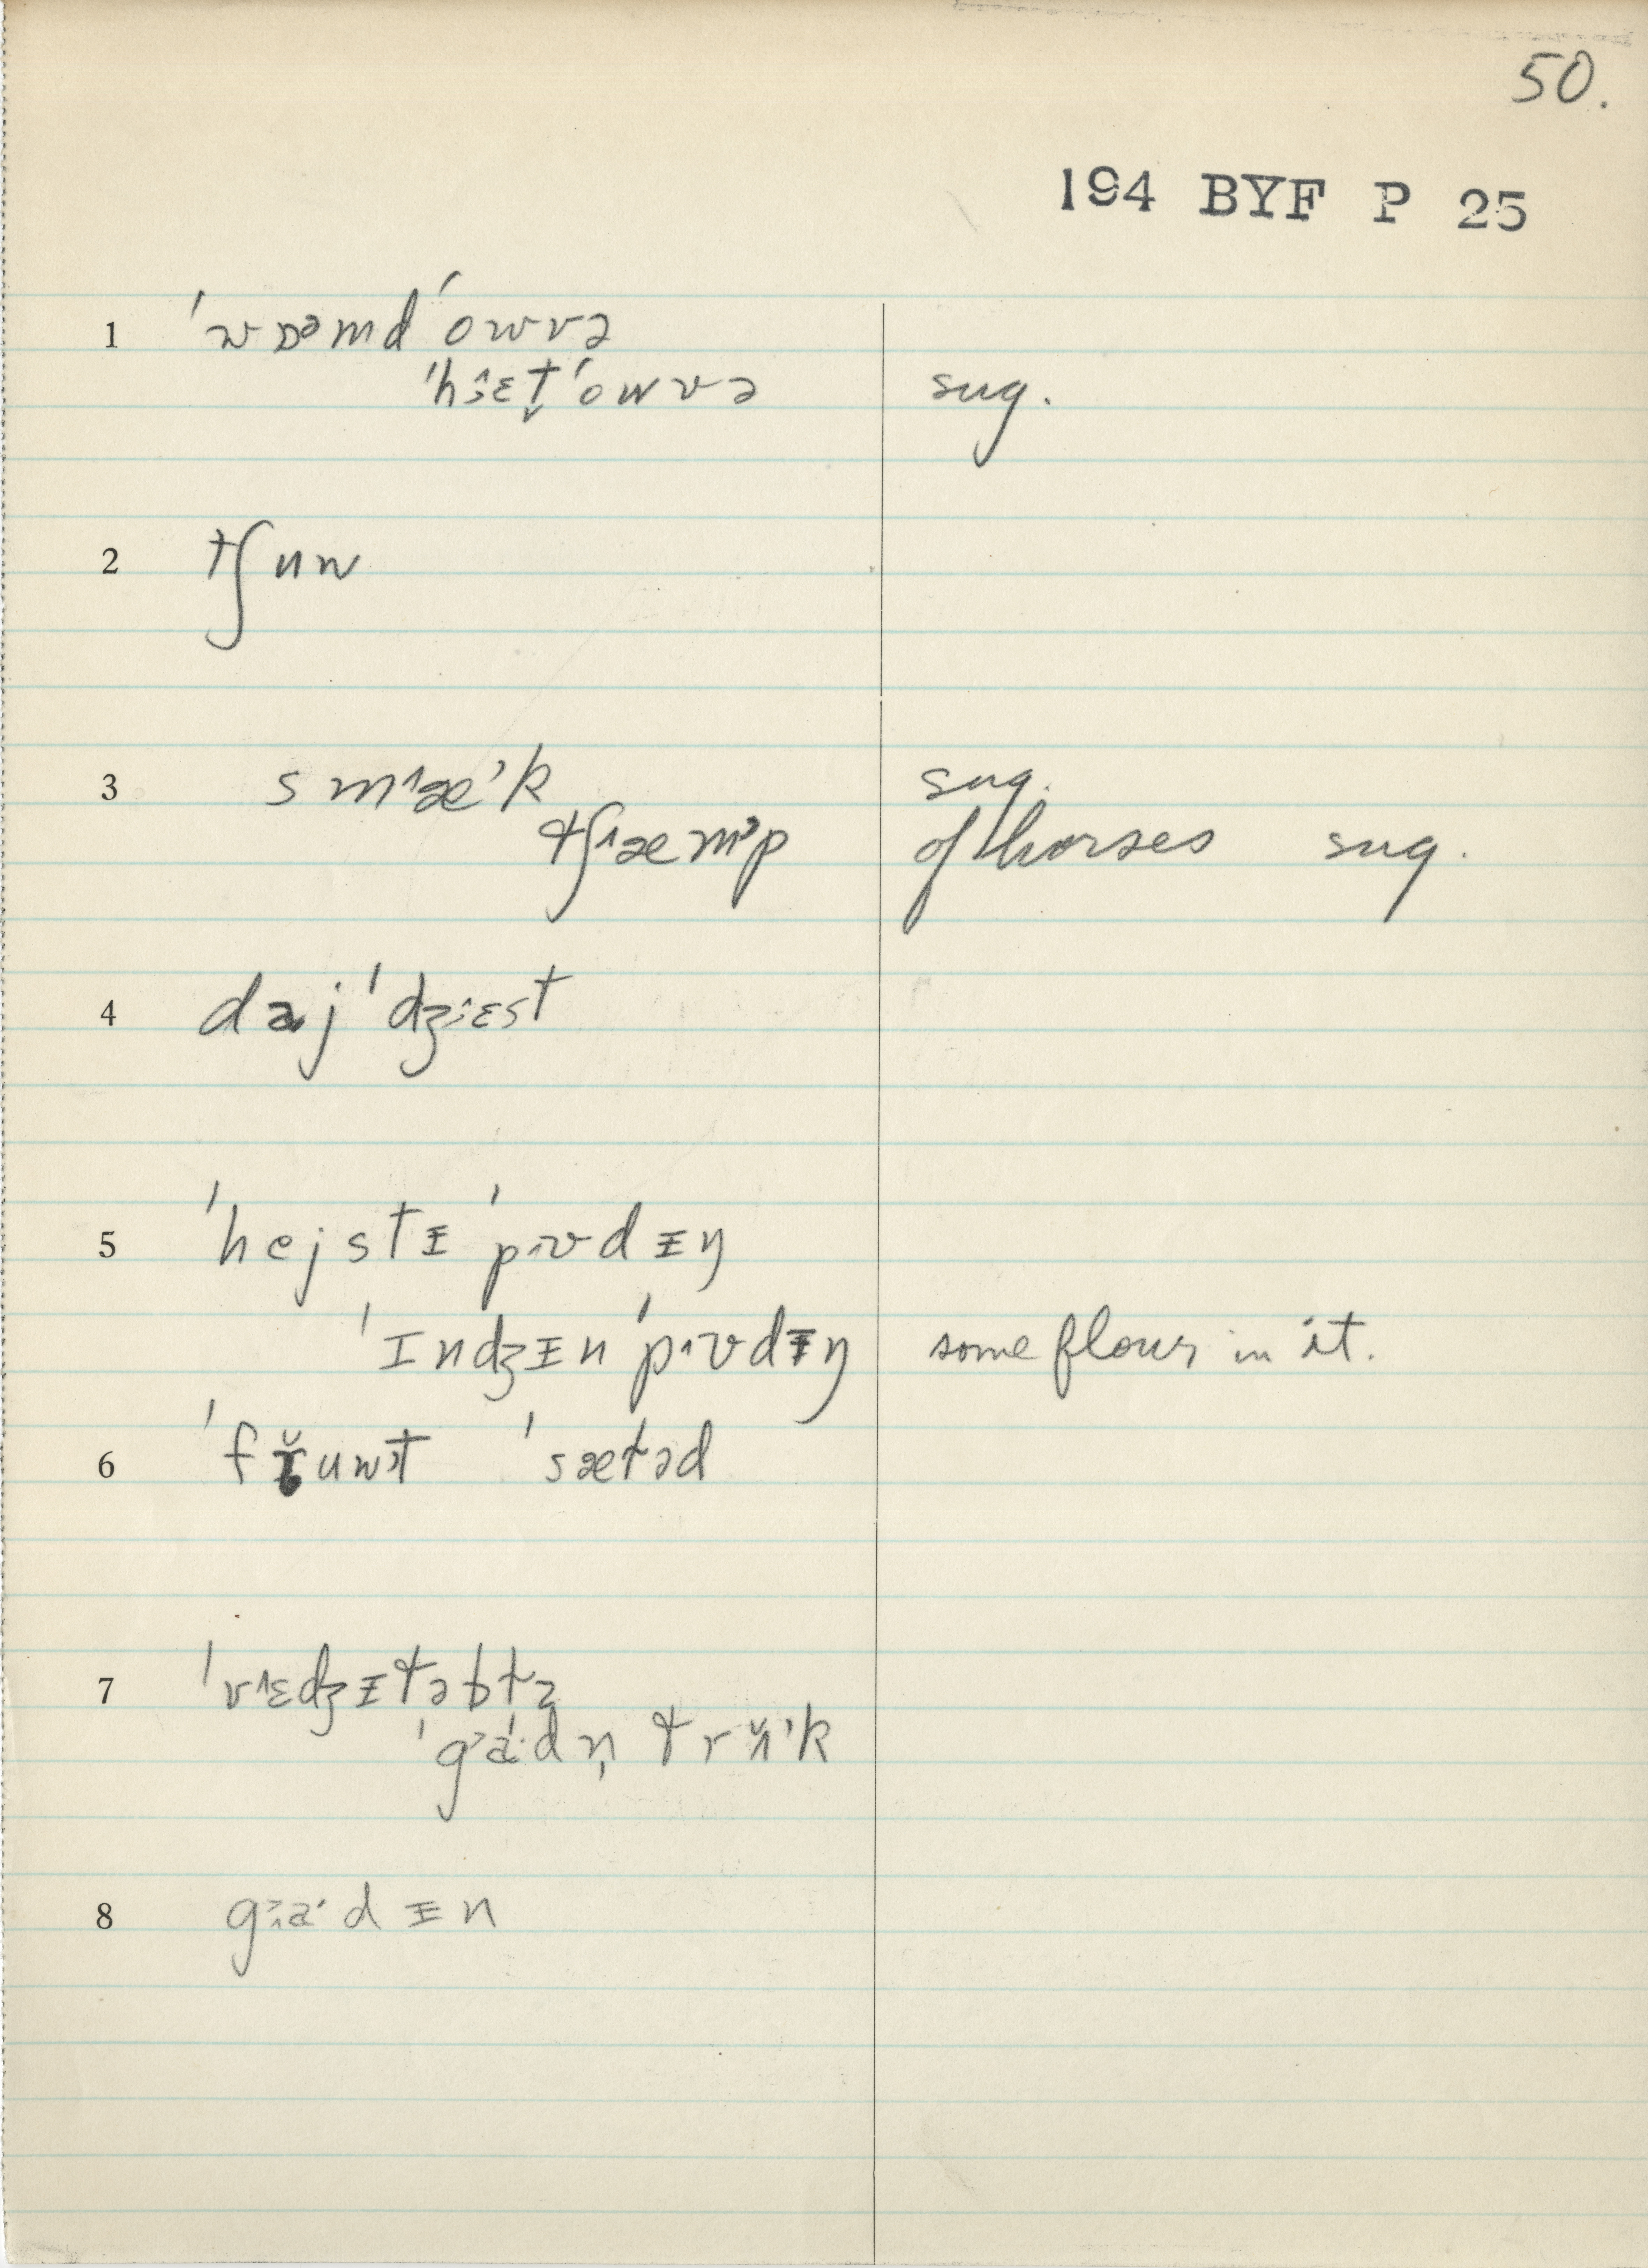 50.
194 BYF P 25
1 ˈwɒᵊmdˈowvə
ˈhi̯ɛt̬ˈowvə sug.
2 tʃuw
3 smæˈk sug.
tʃæmˈp of horses sug.
4 dajˈdʒɛst
5 ˈhejstᵻ ˈpʊdᵻŋ
ˈɪndʒᵻn ˈpʊdᵻŋ some flour in it.
6 ˈfruwt ˈsætəd
7 ˈvɛdʒᵻtəbɫz
ˈgaˑdn̩ trʌˈk
8 gaˑdᵻn